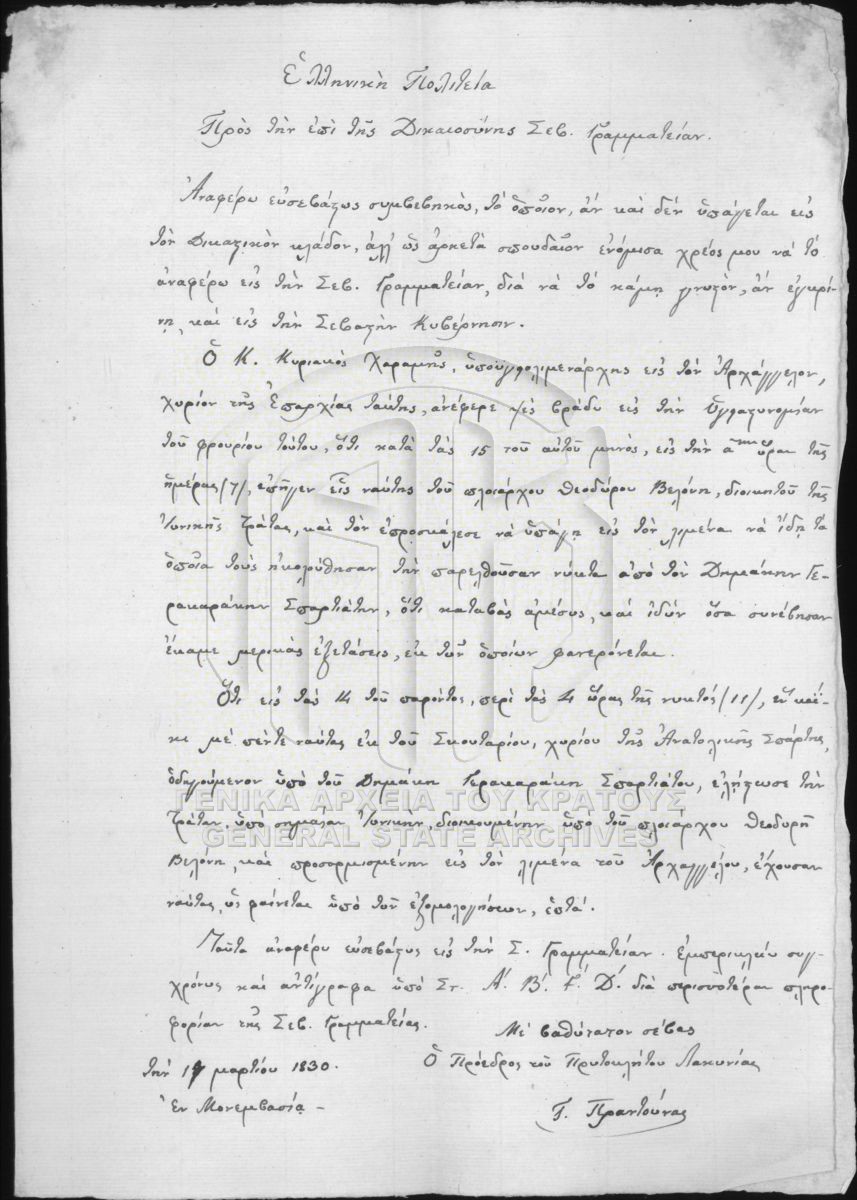 Ἑλληνικὴ Πολιτεία
Πρὸς τὴν ἐπὶ τῆς Δικαιοσύνης Σεβ. Γραμματείαν.
Ἀναφέρω εὐσεβάστως συμβεβηκὸς, τὸ ὁποῖον, ἂν καὶ δὲν ὑπάγεται εἰς
τὸν Δικαστικὸν κλάδον, ἀλλ' ὡς ἀρκετὰ σπουδαῖον ἐνόμισα χρέος μου νὰ τὸ
ἀναφέρω εἰς τὴν Σεβ. Γραμματείαν, διὰ νὰ τὸ κάμῃ γνωστὸν, ἂν ἐγκρί-
νῃ, καὶ εἰς τὴν Σεβαστὴν Κυβέρνησιν.
Ὁ Κ. Κυριακὸς Χαραμῆς, ὑποϋγειολιμενάρχης εἰς τὸν Ἀρχάγγελον,
χωρίον τῆς Ἐπαρχίας ταύτης, ἀνέφερε χθὲς βράδυ εἰς τὴν Ὑγειαστυνομίαν
τοῦ φρουρίου τούτου, ὅτι κατὰ τὰς 15 τοῦ αὐτοῦ μηνὸς, εἰς τὴν α ὥραν τῆς
ἡμέρας /7/, ἐπῆγεν εἷς ναύτης τοῦ πλοιάρχου Θεοδώρου Βελόνη, διοικητοῦ τῆς
Ἰωνικῆς Τράτας, καὶ τὸν ἐπροσκάλεσε νὰ ὑπάγῃ εἰς τὸν λιμένα νὰ ἴδῃ τὰ
ὁποῖα τοὺς ἠκολούθησαν τὴν παρελθοῦσαν νύκτα ἀπὸ τὸν Δημάκην Γε-
ρακαράκην Σπαρτιάτην, ὅτι καταβὰς ἀμέσως, καὶ ἰδὼν ὅσα συνέβησαν
ἔκαμε μερικὰς ἐξετάσεις, ἐκ τῶν ὁποίων φανερόνεται.
Ὅτι εἰς τὰς 14 τοῦ παρόντος, περὶ τὰς 4 ὥρας τῆς νυκτός /11/, ἓν καΐ-
κι μὲ πέντε ναύτας ἐκ τοῦ Σκουταρίου, χωρίου τῆς Ἀνατολικῆς Σπάρτης,
ὁδηγούμενον ὑπὸ τοῦ Δημάκη Γερακαράκη Σπαρτιάτου, ἐλῄστωσε τὴν
Τράταν, ὑπὸ σημαίαν Ἰωνικὴν, διοικουμένην ὑπὸ τοῦ πλοιάρχου Θεοδωρῆ
Βελόνη, καὶ προσορμισμένην εἰς τὸν λιμένα τοῦ Ἀρχαγγέλου, ἔχουσαν
ναύτας, ὡς φαίνεται ὑπὸ τῶν ἐξομολογήσεων, ἑπτά.
Ταῦτα ἀναφέρω εὐσεβάστως εἰς τὴν Σ. Γραμματείαν. Ἐμπερικλείω συγ-
χρόνως καὶ ἀντίγραφα ὑπὸ Στ. Α΄. Β΄. Γ΄. Δ΄. διὰ περισσοτέραν πληρο-
φορίαν τῆς Σεβ. Γραμματείας.
Μὲ βαθύτατον σέβας
τὴν 17 μαρτίου 1830. Ὁ Πρόεδρος τοῦ Πρωτοκλήτου Λακωνίας
Ἐν Μονεμβασίᾳ – Γ. Πραντούνας
ΓΕΝΙΚΑ ΑΡΧΕΙΑ ΤΟΥ ΚΡΑΤΟΥΣ
GENERAL STATE ARCHIVES